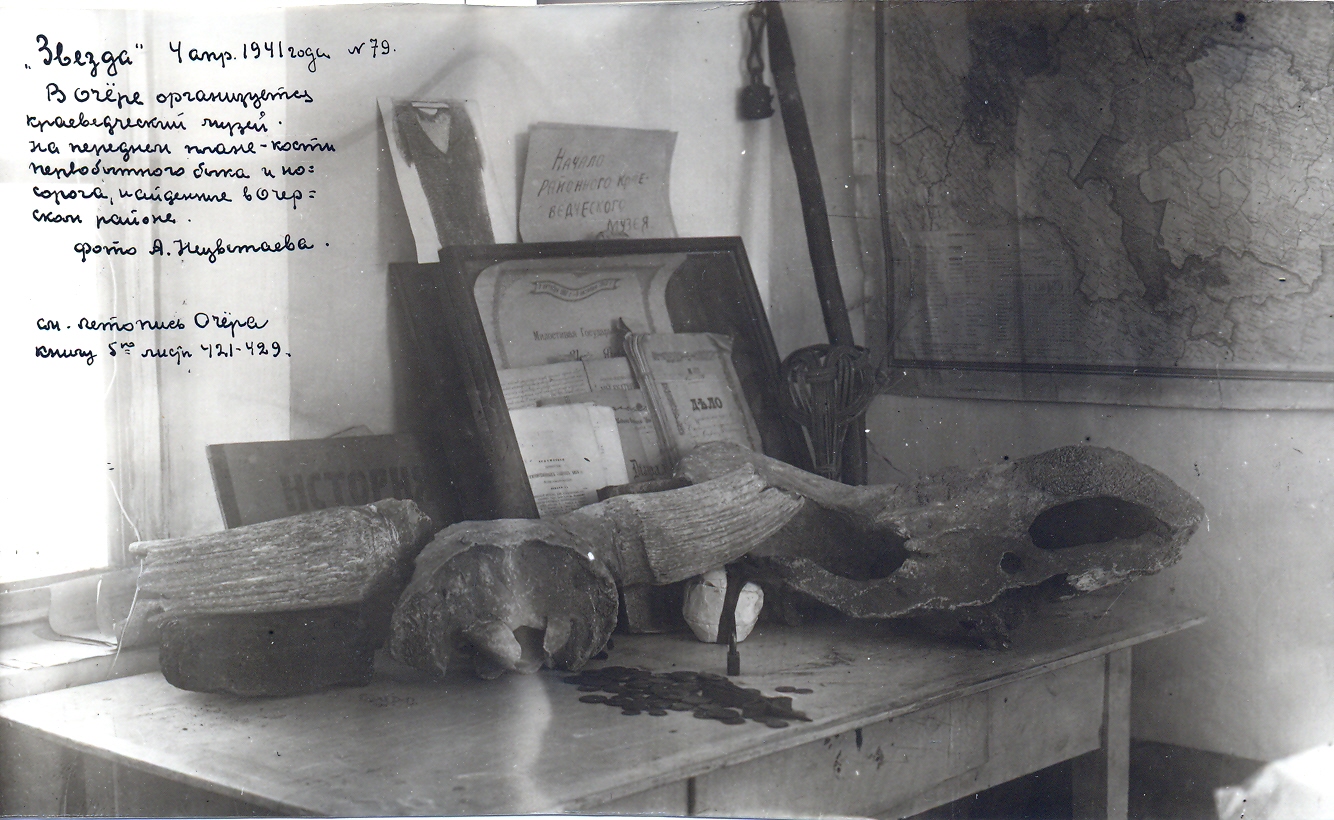 „Звезда" 4 апр. 1941 года № 79.
В Очёре организуется
краеведческий музей.
на переднем плане-кости
первобытного быка и но=
сорога, найденные в Очер=
ском районе.
фото А. Неуветаева.
см. летопись Очёра
книгу 5ую лист 421-429.
Начало
районного крае-
ведческого
музея
Дѣло
История